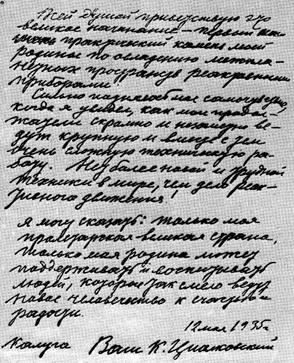 Всей душой приветствую это
великое начинание — первый
практический камень моей
родины по овладению межпла-
нетных пространств реактивными
приборами.
Сильно
когда я увидел как мои продол-
жатели скромно и незаметно ве-
дут крупную и вместе с тем
очень сложную техническую ра-
боту. Нет более новой и трудной
техники в мире, чем дело реак-
тивного движения.
Я могу сказать: только моя
пролетарская великая страна,
только моя родина может
поддерживать и воспитывать
людей, которые так смело ведут
наше человечество к счастью и
радости.
12 мая 1935 г.
Калуга Ваш К. Циолковский